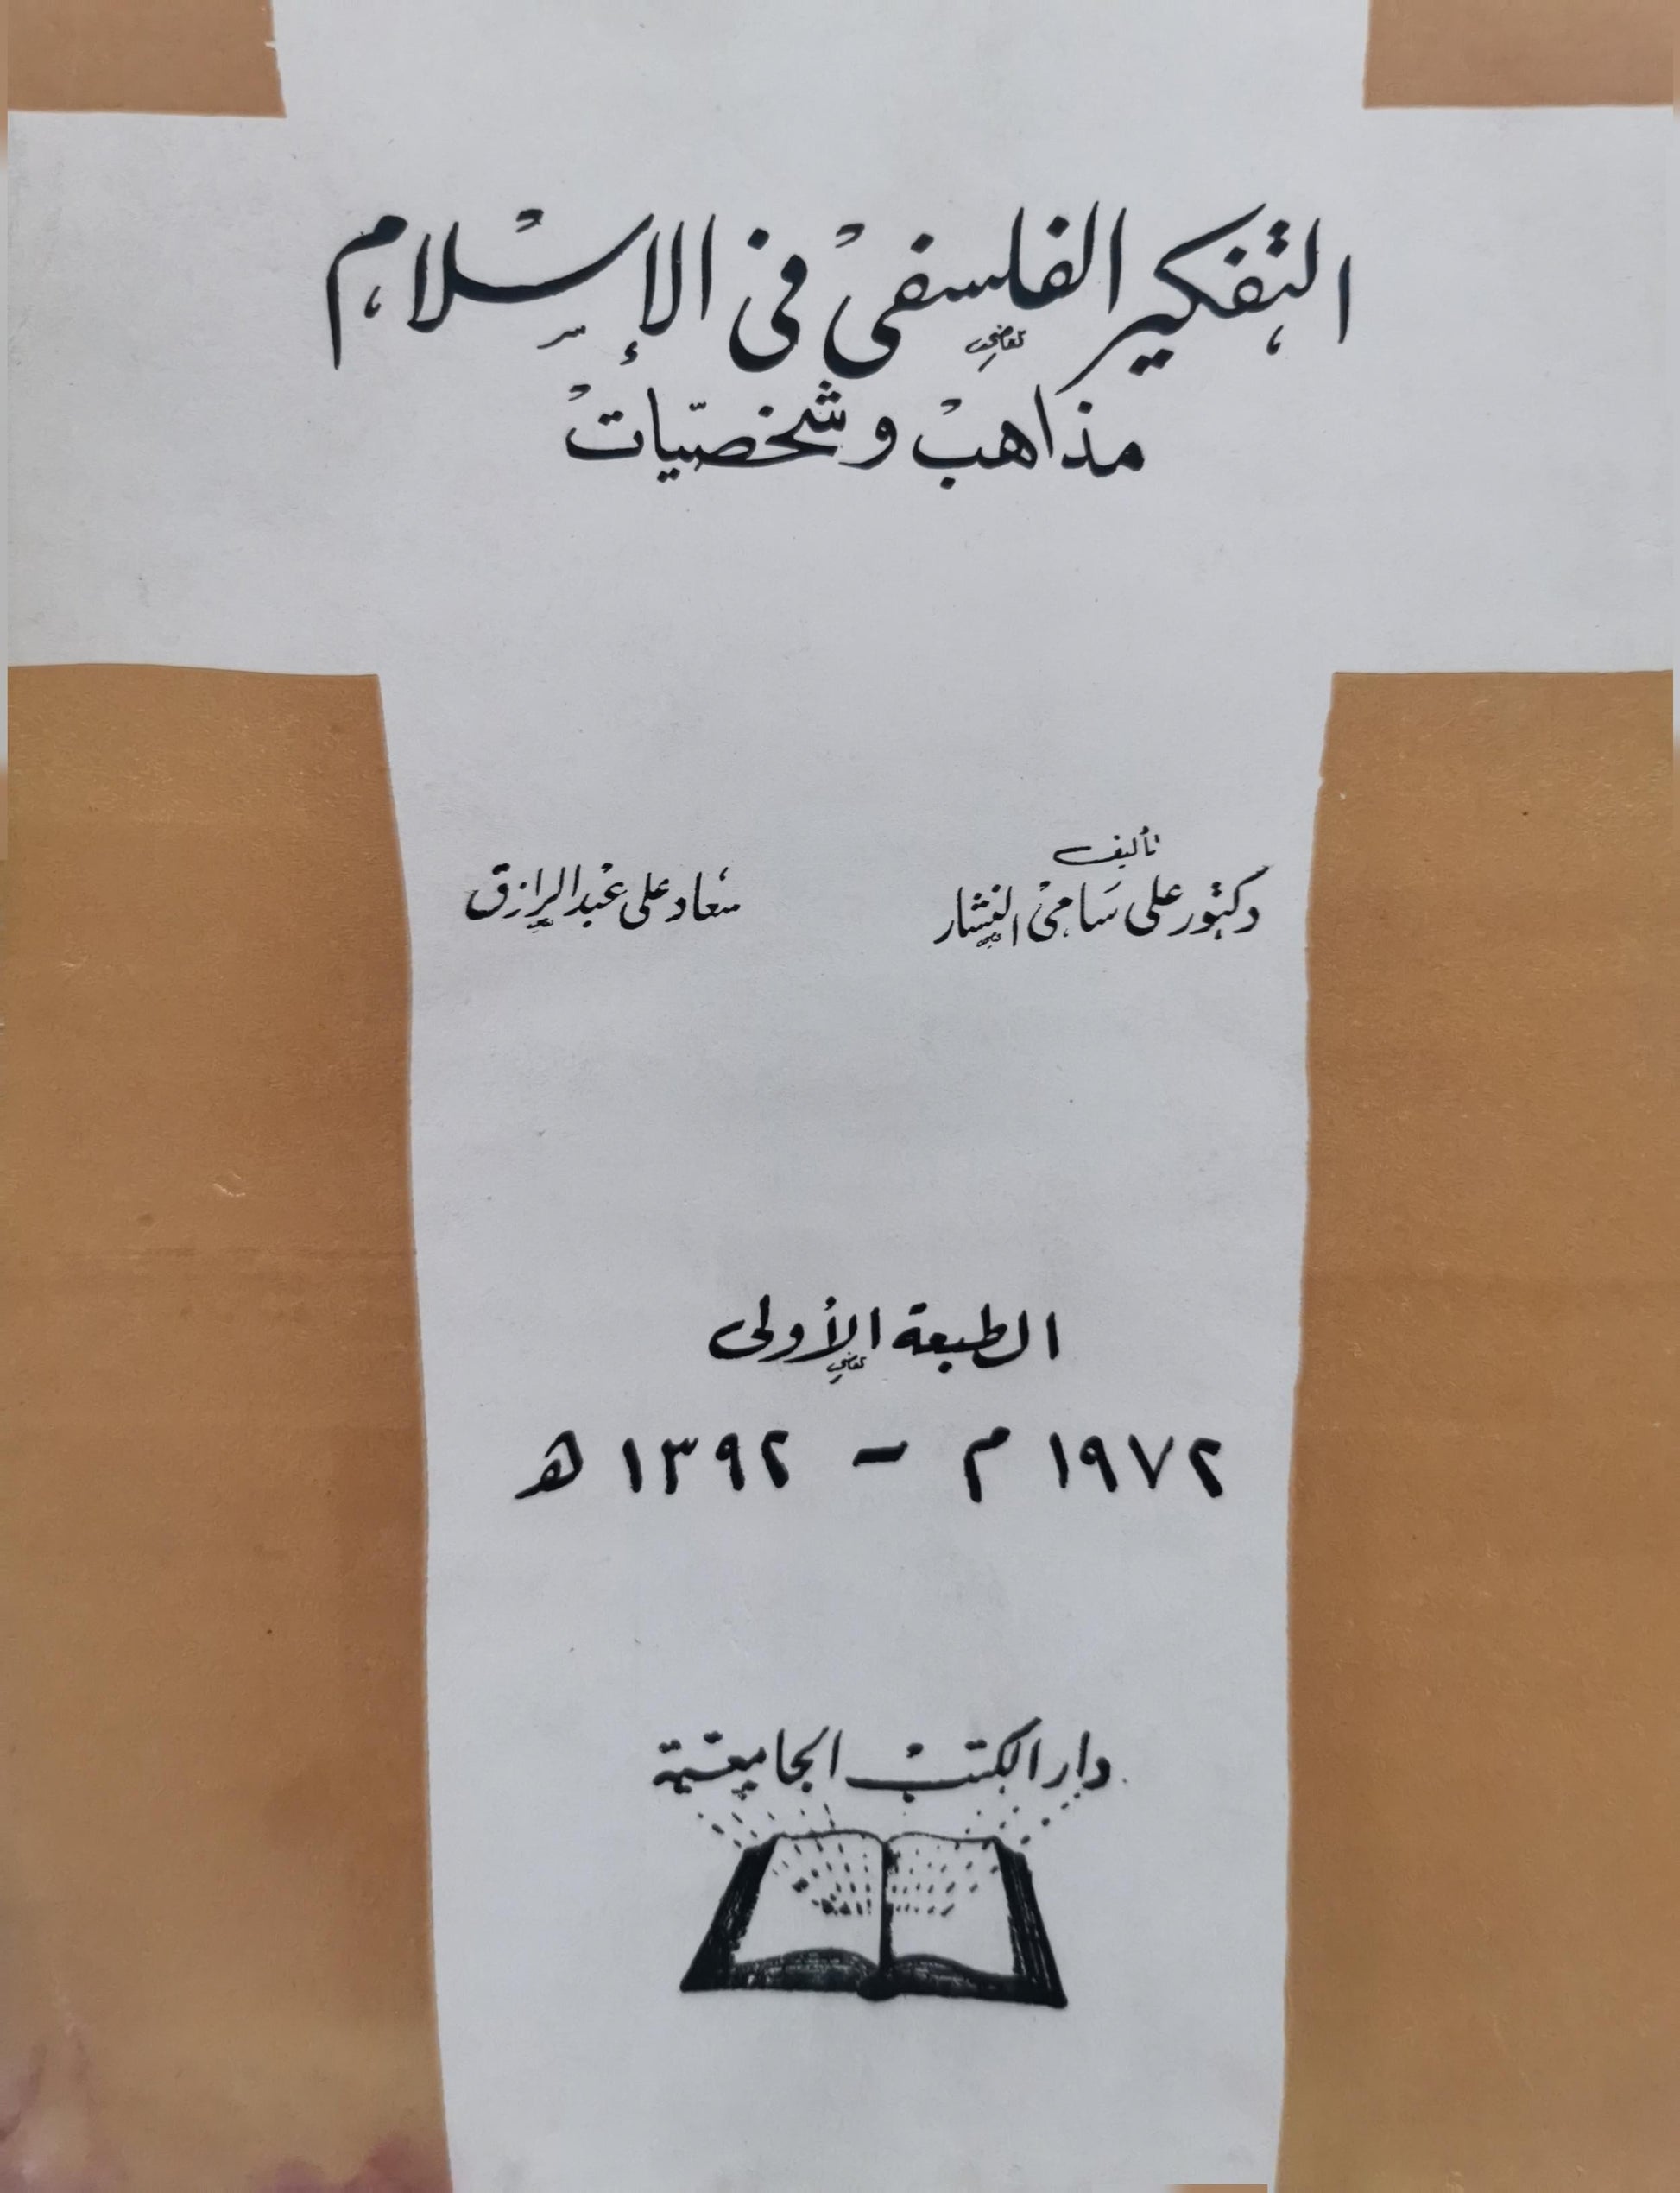 التفكير الفلسفى فى الإسلام
مذاهب وشخصيات
تأليف
دكتور على سامى النشار
سعاد على عبد الرازق
الطبعة الأولى
١٩٧٢ م - ١٣٩٢ ھ
دار الكتب الجامعية